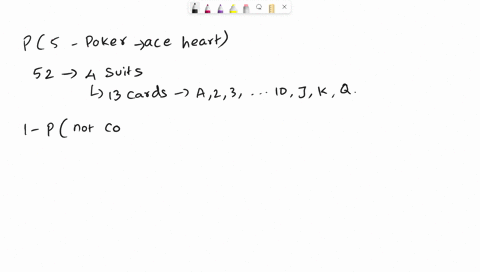 P(5 - Poker → ace heart)
52 → 4 suits
↳ 13 cards → A, 2, 3, ... 10, J, K, Q.
1 - P( not co